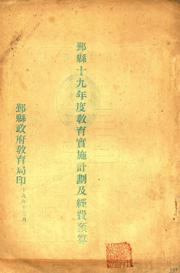 鄞縣十九年度教育實施計劃及經費豫算
鄞縣政府教育局印